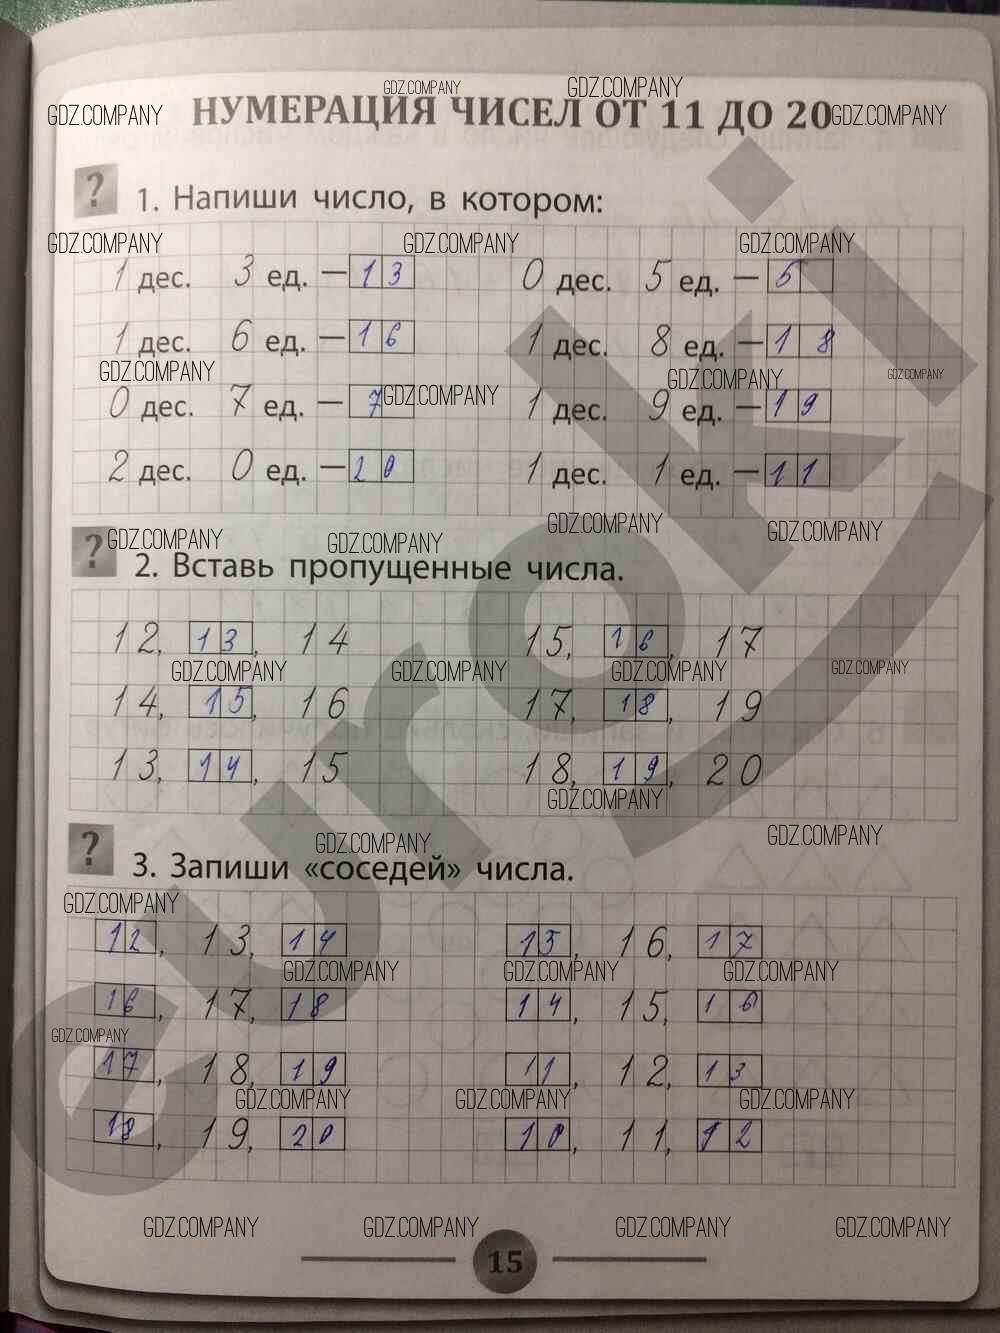 GDZ.COMPANY GDZ.COMPANY
GDZ.COMPANY НУМЕРАЦИЯ ЧИСЕЛ ОТ 11 ДО 20 GDZ.COMPANY
? 1. Напиши число, в котором:
GDZ.COMPANY GDZ.COMPANY GDZ.COMPANY
1 дес. 3 ед. – 13 0 дес. 5 ед. – 5
1 дес. 6 ед. – 16 1 дес. 8 ед. – 18
GDZ.COMPANY GDZ.COMPANY GDZ.COMPANY
0 дес. 7 ед. – 7 GDZ.COMPANY 1 дес. 9 ед. – 19
2 дес. 0 ед. – 20 1 дес. 1 ед. – 11
GDZ.COMPANY GDZ.COMPANY GDZ.COMPANY GDZ.COMPANY
? 2. Вставь пропущенные числа.
12, 13, 14 15, 16, 17
GDZ.COMPANY GDZ.COMPANY GDZ.COMPANY GDZ.COMPANY
14, 15, 16 17, 18, 19
13, 14, 15 18, 19, 20
GDZ.COMPANY
GDZ.COMPANY GDZ.COMPANY
? 3. Запиши «соседей» числа.
GDZ.COMPANY
12, 13, 14 15, 16, 17
GDZ.COMPANY GDZ.COMPANY GDZ.COMPANY
16, 17, 18 14, 15, 16
GDZ.COMPANY
17, 18, 19 11, 12, 13
GDZ.COMPANY GDZ.COMPANY GDZ.COMPANY
18, 19, 20 10, 11, 12
GDZ.COMPANY GDZ.COMPANY GDZ.COMPANY GDZ.COMPANY
15
euroki